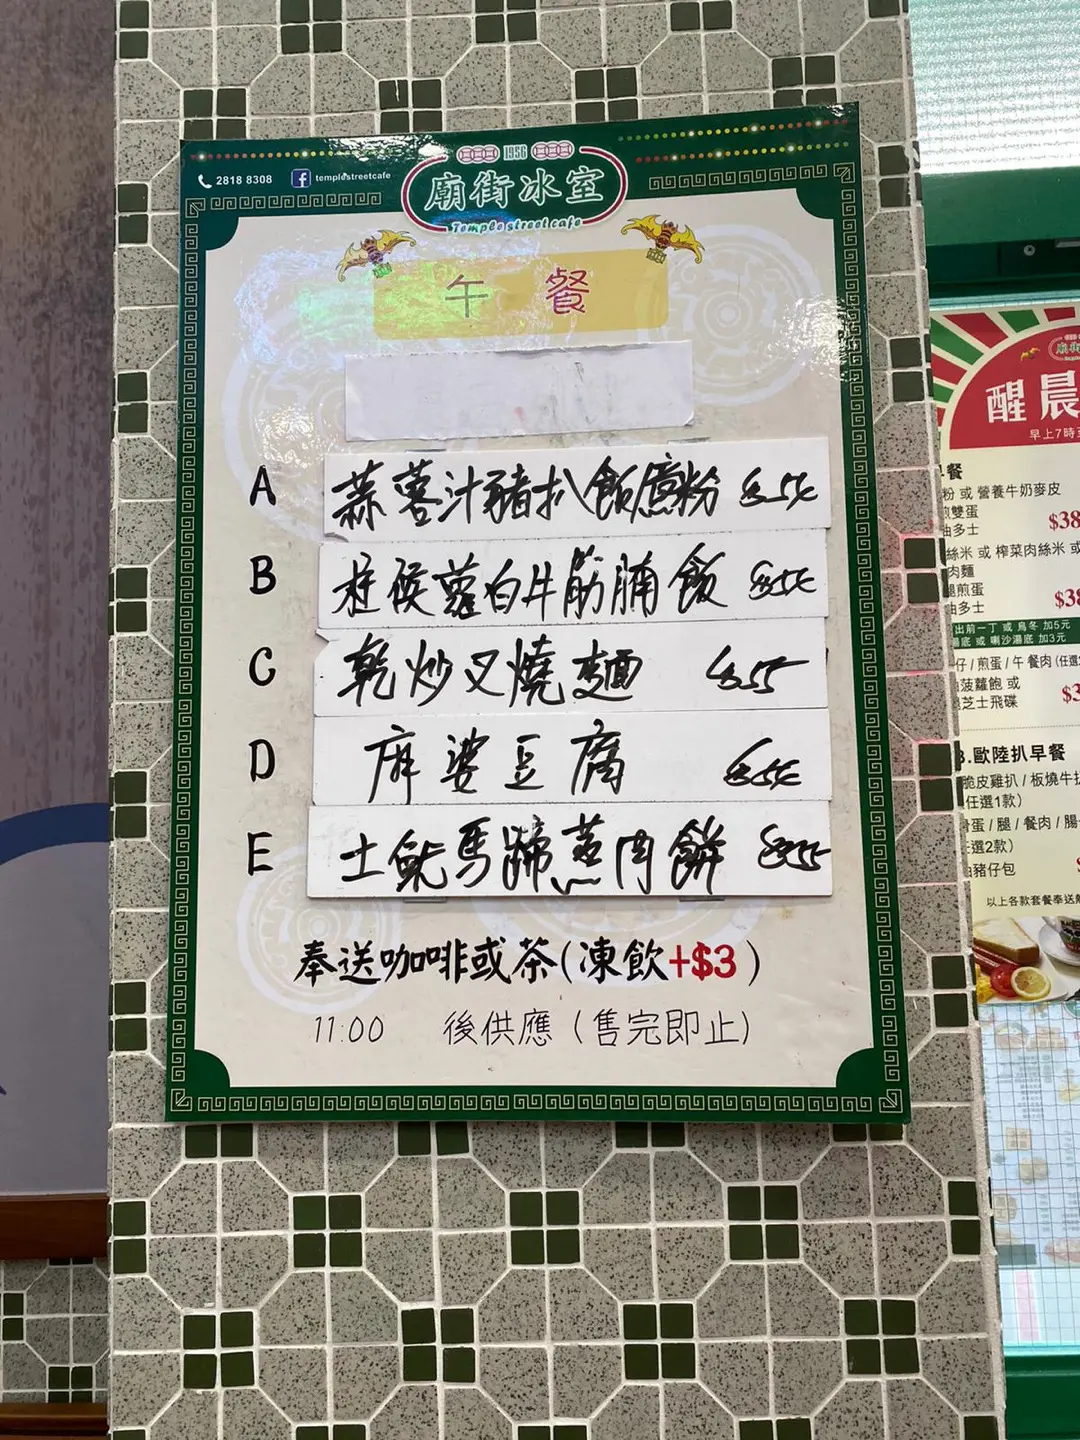 1956
2818 8308
templestreetcafe
廟街冰室
Temple street cafe
午 餐
A 蒜薯汁豬扒飯
B 柱候蘿白牛筋腩飯
C 乾炒叉燒麵 $55
D 麻婆豆腐
E 土魷馬蹄蒸肉餅
奉送咖啡或茶(凍飲+$3)
11:00 後供應 (售完即止)
醒晨
早上7時
早餐
粉 或 營養牛奶麥皮
煎雙蛋
油多士
$38
絲米 或 榨菜肉絲米
肉麵
腿煎蛋
油多士
$38
出前一丁 或 烏冬 加5元
湯底 或 喇沙湯底 加3元
仔 / 煎蛋 / 午餐肉 (任選
油菠蘿飽 或
芝士飛碟
$3
B.歐陸扒早餐
脆皮雞扒 / 板燒牛扒
(任選1款)
蛋 / 腿 / 餐肉 / 腸
選2款)
油豬仔包
以上各款套餐奉送